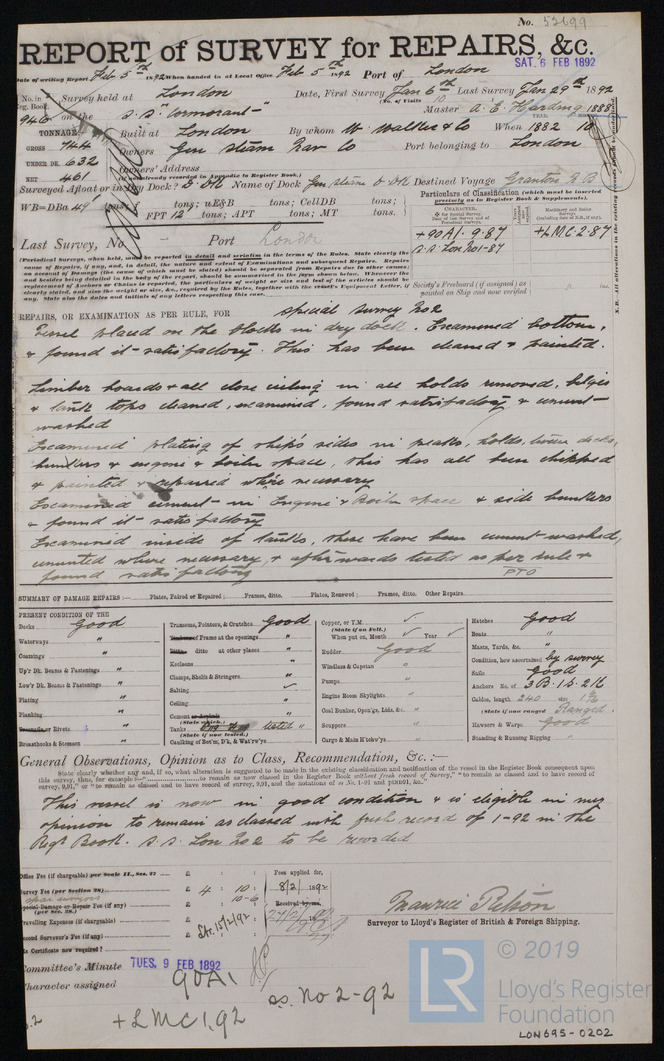 No. 52699
REPORT of SURVEY for REPAIRS, &c.
SAT. 6 FEB 1892
Date of writing Report Feb 5th 1892 When handed in at Local Office Feb 5th 1892 Port of London
No. in Reg. Book. Survey held at London Date, First Survey Jan 6th Last Survey Jan 29th 1892
(No. of Visits 10)
946 on the S.S. "Cormorant" Master A. E. Harding 1888
TONNAGE Built at London By whom W. Walker & Co When 1882 10
GROSS 744 Owners Gen Steam Nav Co Port belonging to London
UNDER DK. 632 Owners' Address
(if not already recorded in Appendix to Register Book.)
NET 461
Surveyed Afloat or in Dry Dock? Name of Dock Gen Steam D Dk Destined Voyage Granton
WB=DBa 48' tons; f tons; uE&B tons; CellDB tons;
FPT 12 tons; APT tons; MT tons;
Particulars of Classification (which must be inserted precisely as in Register Book & Supplements).
CHARACTER.
+90A1. 9.87
S.S. Lon No1-87
+LMC 2.87
Last Survey, No — Port London
(Periodical Surveys, when held, must be reported in detail and seriatim in the terms of the Rules. State clearly the cause of Repairs, if any, and, in detail, the nature and extent of Examinations and subsequent Repairs. Repairs on account of Damage (the cause of which must be stated) should be separated from Repairs due to other causes;
any. State also the dates and initials of any letters respecting this case.
Society's Freeboard (if assigned) as painted on Ship and now verified
N.B. All alterations in the existing
REPAIRS, OR EXAMINATION AS PER RULE, FOR special survey No2
Vessel placed on the blocks in dry dock. Examined bottom,
& found it satisfactory. This has been cleaned & painted.
Limber boards & all close ceiling in all holds removed, bilges
& tank tops cleaned, examined, found satisfactory & cement-
washed
Examined plating of ship's sides in peaks, holds, tween decks,
bunkers & engine & boiler space, this has all been chipped
& painted & repaired where necessary
Examined cement in Engine & Boiler space & side bunkers
& found it satisfactory
Examined inside of tanks, these have been cement-washed,
cemented where necessary, & afterwards tested as per rule &
found satisfactory PTO
SUMMARY OF DAMAGE REPAIRS:— Plates, Faired or Repaired; Frames, ditto. Plates, Renewed; Frames, ditto. Other Repairs.
PRESENT CONDITION OF THE
Decks Good
Waterways "
Coamings "
Up'r Dk. Beams & Fastenings "
Low'r Dk. Beams & Fastenings "
Plating "
Planking "
Treenails or Rivets "
Breasthooks & Stemson "
Transoms, Pointers, & Crutches Good
Timbers of Frame at the openings "
Ditto ditto at other places "
Keelsons "
Clamps, Shelfs & Stringers "
Salting ✓
Ceiling "
Cement or Asphalt
(State which.)
Tanks tested "
(State if now tested.)
Caulking of Bot'm, D'k, & Wat'rw'ys
Copper, or Y.M. ✓
(State if on Felt.)
When put on, Month ✓ Year ✓
Rudder Good
Windlass & Capstan "
Pumps "
Engine Room Skylights "
Coal Bunker, Open'gs, Lids, &c. "
Scuppers "
Cargo & Main H'tchw'ys "
Hatches Good
Boats "
Masts, Yards, &c. "
Condition, how ascertained by survey
Sails Good
Anchors No. of 3B. 1S. 2K
Cables, length 240 size 1 7/16
(State if now ranged) Ranged
Hawsers & Warps Good
Standing & Running Rigging "
General Observations, Opinion as to Class, Recommendation, &c.:—
State clearly whether any and, if so, what alteration is suggested to be made in the existing classification and notification of the vessel in the Register Book consequent upon this survey, thus, for example:—
This vessel is now in good condition & is eligible in my
opinion to remain as classed with fresh record of 1-92 in the
Regr. Book. S.S. Lon No2 to be recorded
Office Fee (if chargeable) per Scale II., Sec. 27 £ : :
Survey Fee (per Section 28) £ 4 : 10 :
Special Damage or Repair Fee (if any) 10-6
(per Sec. 28.)
Travelling Expenses (if chargeable) £
Second Surveyor's Fee (if any) £
Is Certificate now required?
Fees applied for, 8/2/1892
Received by me,
Sr. 15/2/92
Surveyor to Lloyd's Register of British & Foreign Shipping.
Committee's Minute TUES. 9 FEB 1892
Character assigned 90A1
s.s. No 2-92
+LMC 1,92
© 2019
LR
Lloyd's Register
Foundation
LON695-0202